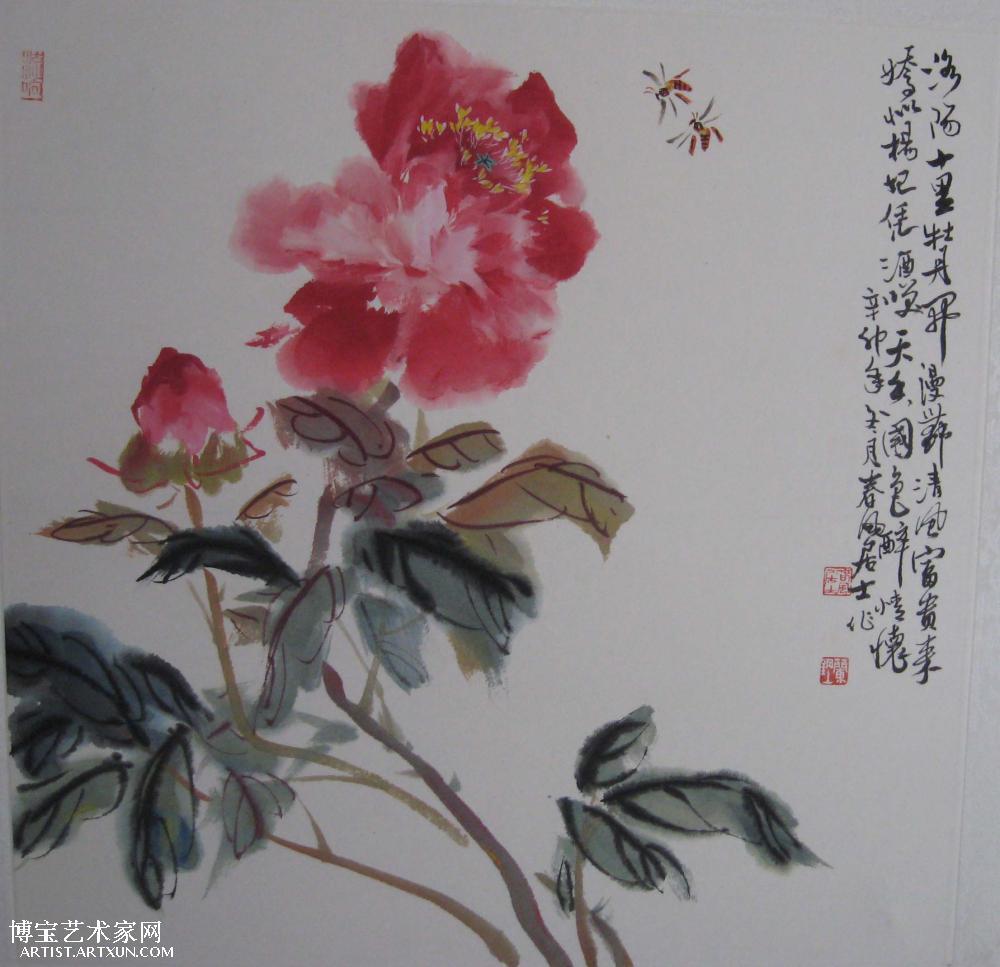 洛阳十里牡丹开漫舞清风富贵来
娇似杨妃凭酒唤天香国色醉情怀
辛卯年冬月春风居士作
博宝艺术家网
ARTIST.ARTXUN.COM